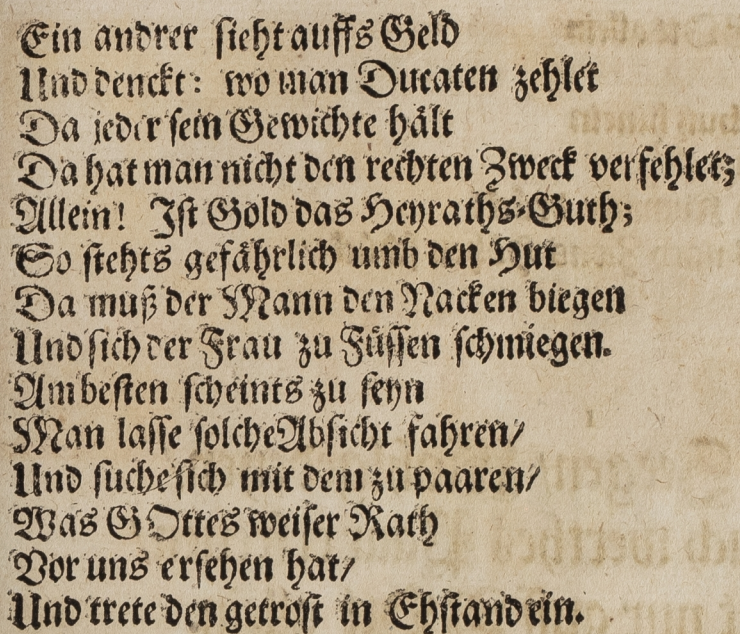 Ein andrer sieht auffs Geld
Und denckt: wo man Ducaten zehlet
Da jeder sein Gewichte hält
Da hat man nicht den rechten Zweck verfehlet;
Allein! Ist Gold das Heyraths-Guth;
So stehts gefährlich umb den Hut
Da muß der Mann den Nacken biegen
Und sich der Frau zu Füssen schmiegen.
Am besten scheints zu seyn
Man lasse solche Absicht fahren/
Und suche sich mit dem zu paaren/
Was GOttes weiser Rath
Vor uns ersehen hat/
Und trete den getrost in Ehstand ein.